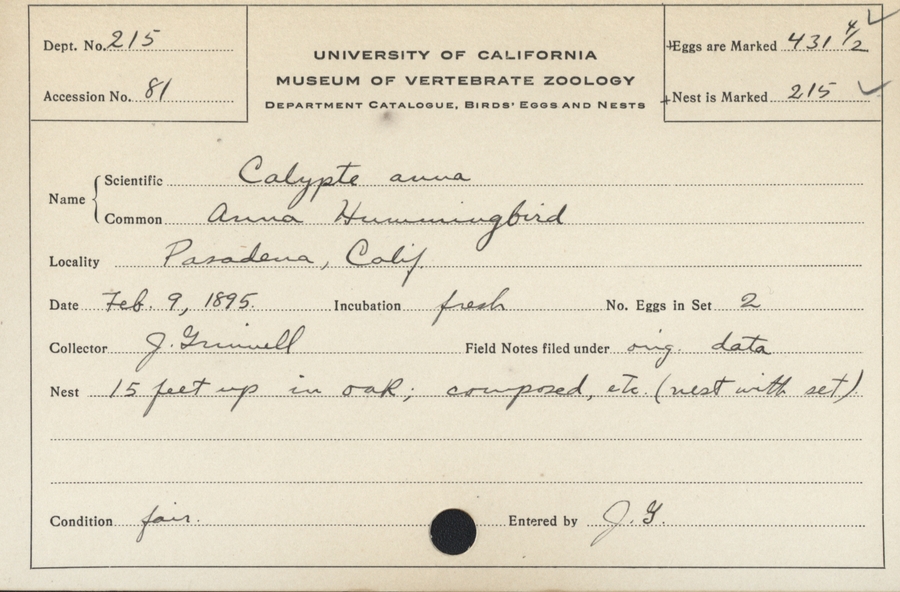 Dept. No. 215
Accession No. 81
UNIVERSITY OF CALIFORNIA
MUSEUM OF VERTEBRATE ZOOLOGY
DEPARTMENT CATALOGUE, BIRDS' EGGS AND NESTS
+Eggs are Marked 431 4/2 ✓
+Nest is Marked 215 ✓
Name
Scientific Calypte anna
Common Anna Hummingbird
Locality Pasadena, Calif.
Date Feb. 9, 1895. Incubation fresh No. Eggs in Set 2
Collector J. Grinnell Field Notes filed under orig. data
Nest 15 feet up in oak; composed, etc. (nest with set).
Condition fair. Entered by J. G.